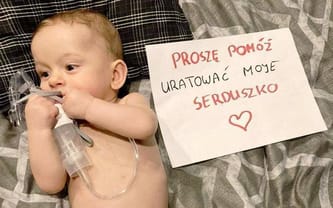 PROSZĘ POMÓŻ
URATOWAĆ MOJE
SERDUSZKO